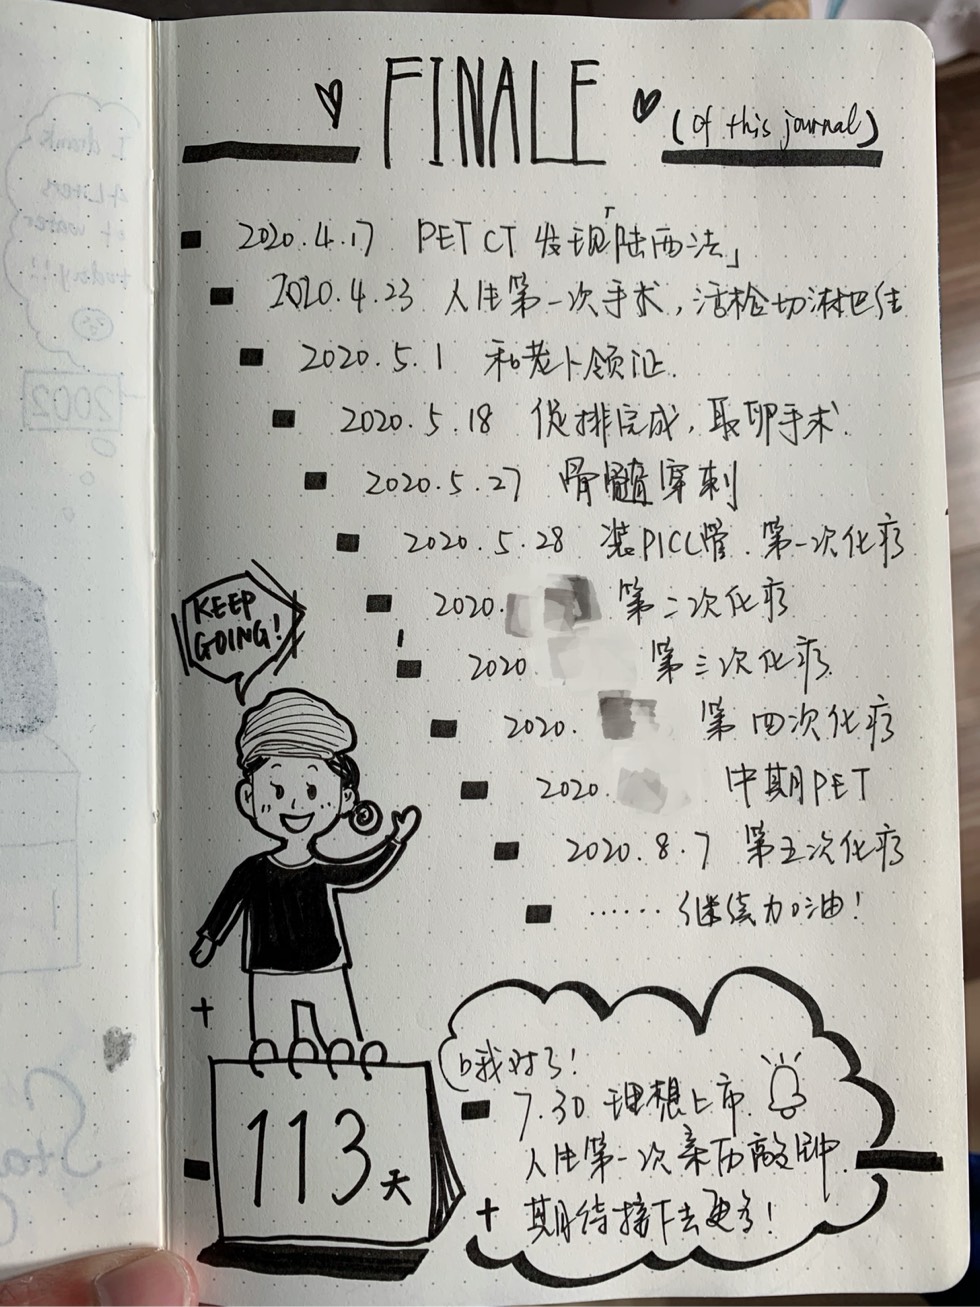 FINALE
(of this journal)
2020.4.17 PET CT 发现「陆西法」
2020.4.23 人生第一次手术，活检切淋巴结
2020.5.1 和老卜领证.
2020.5.18 促排完成，取卵手术.
2020.5.27 骨髓穿刺
2020.5.28 装PICC管. 第一次化疗
2020. 第二次化疗
2020 第三次化疗.
2020. 第四次化疗
2020. 中期PET
2020.8.7 第五次化疗
…… 继续加油！
KEEP
GOING!
113天
对了！
7.30 理想上市
人生第一次亲历敲钟.
+ 期待接下去更多！
I drank
4 Liters
of water
today!!!
2002
Sta